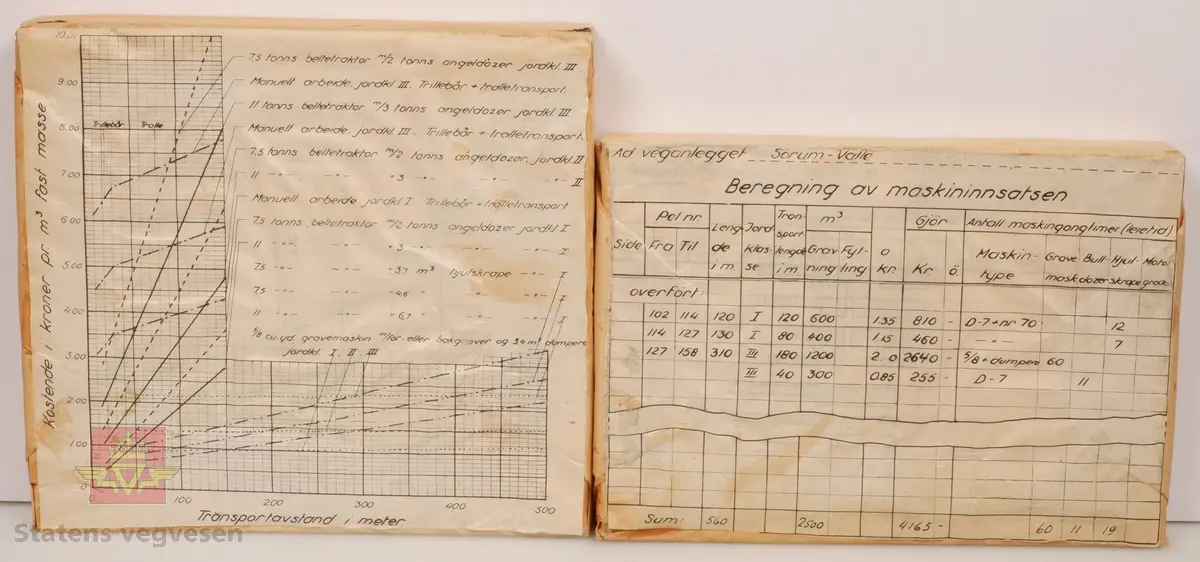 10.00
7,5 tonns beltetraktor m/2 tonns angeldozer jordkl. III
Manuell arbeide. jordkl. III. Trillebår + tralletransport.
9.00
11 tonns beltetraktor m/3 tonns angeldozer jordkl. III
8.00 Trillebår Tralle
Manuell arbeide. jordkl. III. Trillebår + tralletransport.
7,5 tonns beltetraktor m/2 tonns angeldozer. jordkl. II
7.00
11 -"- -"- " 3 -"- -"- -"- II
Manuell arbeide jordkl I Trillebår + tralletransport
6.00
7,5 tonns beltetraktor m/2 tonns angeldozer jordkl I
11 -"- -"- " 3 " -"- -"- I
5.00
7,5 -"- -"- " 3,7 m³ hjulskrape -"- I
7,5 -"- -"- " 4,6 " -"- -"- I
4.00
11 -"- -"- " 6,7 " -"- -"- I
5/8 cu.yd. gravemaskin m/for eller bakg.aver og 3,4 m³ dumpere
jordkl. I, II, III
3.00
2.00
1.00
0
0 100 200 300 400 500
Transportavstand i meter
Kostende i kroner pr. m³ fast masse
Ad veganlegget Sørum-Valle
Beregning av maskininnsatsen
Side Pel nr Fra Til Lengde i m Jordklasse Transportlengde i m m³ Gravning Fylling a kr. Gjør Kr ö. Antall maskingangtimer (leietid) Maskintype Gravemask Bulldozer Hjulskrape Motorgrader
overført:
102 114 120 I 120 600 1.35 810 - D-7+nr 70 12
114 127 130 I 80 400 1.15 460 - -"- 7
127 158 310 III 180 1200 2.0 2640 - 5/8 + dumpere 60
III 40 300 0.85 255 - D-7 11
Sum: 560 2500 4165 - 60 11 19
Statens vegvesen